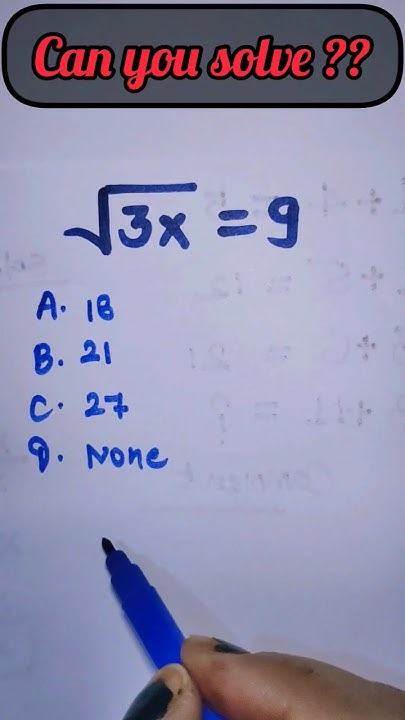 Can you solve ??
√3x = 9
A. 18
B. 21
C. 27
D. None